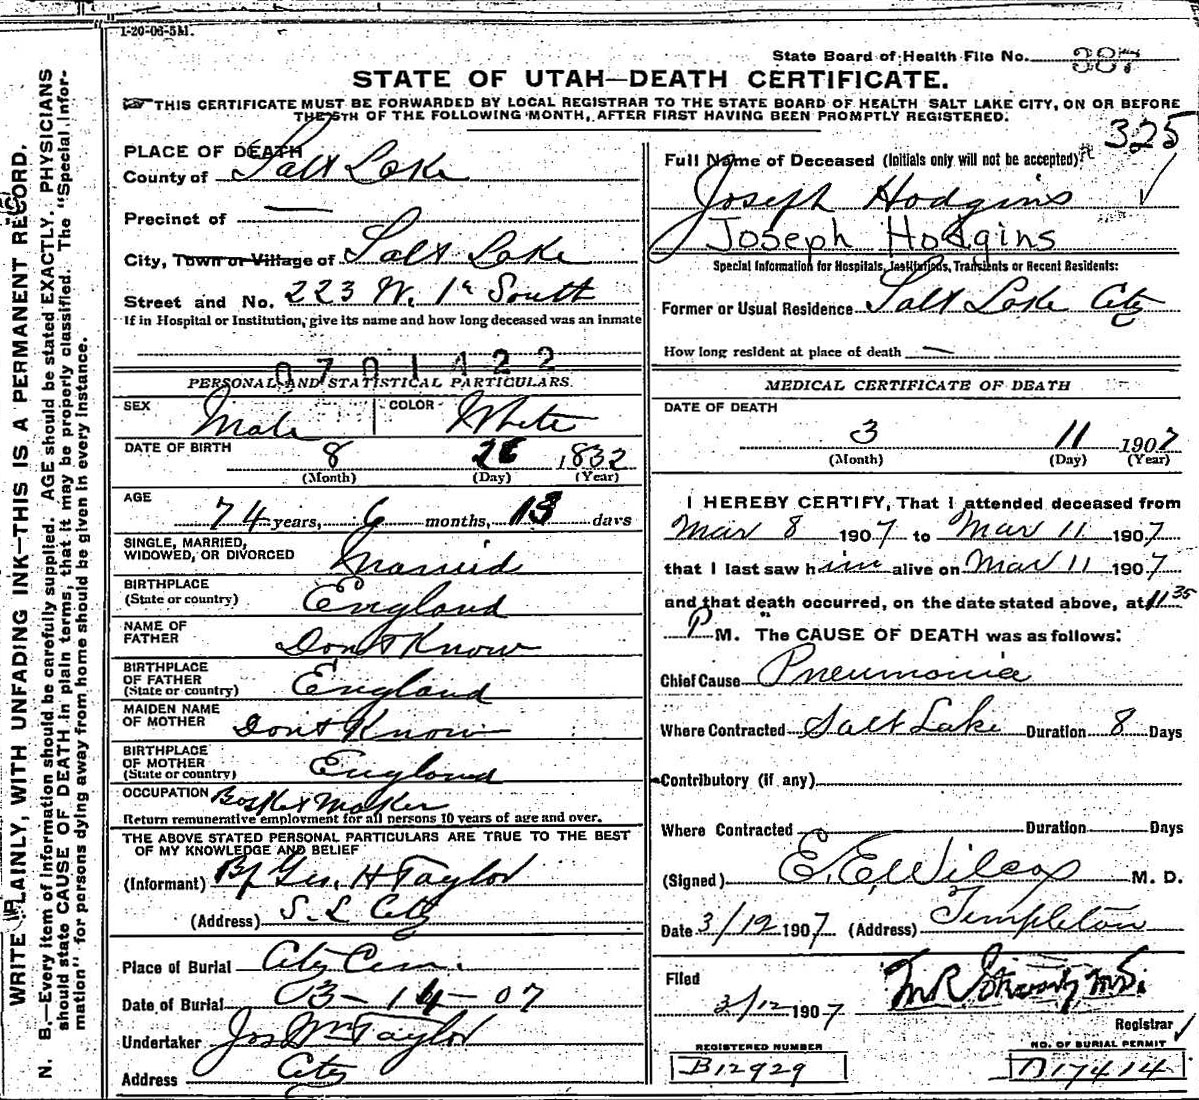 1-20-06-5M.
State Board of Health File No. 387
STATE OF UTAH—DEATH CERTIFICATE.
THIS CERTIFICATE MUST BE FORWARDED BY LOCAL REGISTRAR TO THE STATE BOARD OF HEALTH SALT LAKE CITY, ON OR BEFORE
THE 5TH OF THE FOLLOWING MONTH, AFTER FIRST HAVING BEEN PROMPTLY REGISTERED.
325
PLACE OF DEATH
County of Salt Lake
Precinct of —
City, Town or Village of Salt Lake
Street and No. 223 W. 1st South
If in Hospital or Institution, give its name and how long deceased was an inmate
0701422
PERSONAL AND STATISTICAL PARTICULARS.
SEX Male COLOR White
DATE OF BIRTH 8 1832
(Month) (Day) (Year)
AGE
74 years, 6 months, 13 days
SINGLE, MARRIED,
WIDOWED, OR DIVORCED Married
BIRTHPLACE
(State or country) England
NAME OF
FATHER Dont Know
BIRTHPLACE
OF FATHER
(State or country) England
MAIDEN NAME
OF MOTHER Dont Know
BIRTHPLACE
OF MOTHER
(State or country) England
OCCUPATION Basket Maker
Return remunerative employment for all persons 10 years of age and over.
THE ABOVE STATED PERSONAL PARTICULARS ARE TRUE TO THE BEST
OF MY KNOWLEDGE AND BELIEF
(Informant) By Geo. H Taylor
(Address) S. L City
Place of Burial City Cem.
Date of Burial 03-14-07
Undertaker Jos Wm Taylor
Address City
Full Name of Deceased (Initials only will not be accepted)
Joseph Hodgins
Joseph Hodgins
Special Information for Hospitals, Institutions, Transients or Recent Residents:
Former or Usual Residence Salt Lake City
How long resident at place of death —
MEDICAL CERTIFICATE OF DEATH
DATE OF DEATH
3 11 1907
(Month) (Day) (Year)
I HEREBY CERTIFY, That I attended deceased from
Mar 8 1907 to Mar 11 1907
that I last saw him alive on Mar 11 1907
and that death occurred, on the date stated above, at 11 35
P M. The CAUSE OF DEATH was as follows:
Chief Cause Pneumonia
Where Contracted Salt Lake Duration 8 Days
Contributory (if any)
Where Contracted Duration Days
(Signed) E. E. Wilcox M. D.
Date 3/12 1907 (Address) Templeton
Filed
3/12 1907
Registrar
REGISTERED NUMBER
B12929
NO. OF BURIAL PERMIT
D17414
WRITE PLAINLY, WITH UNFADING INK—THIS IS A PERMANENT RECORD.
N. B.—Every item of information should be carefully supplied. AGE should be stated EXACTLY. PHYSICIANS
should state CAUSE OF DEATH in plain terms, that it may be properly classified. The "Special Infor-
mation" for persons dying away from home should be given in every instance.